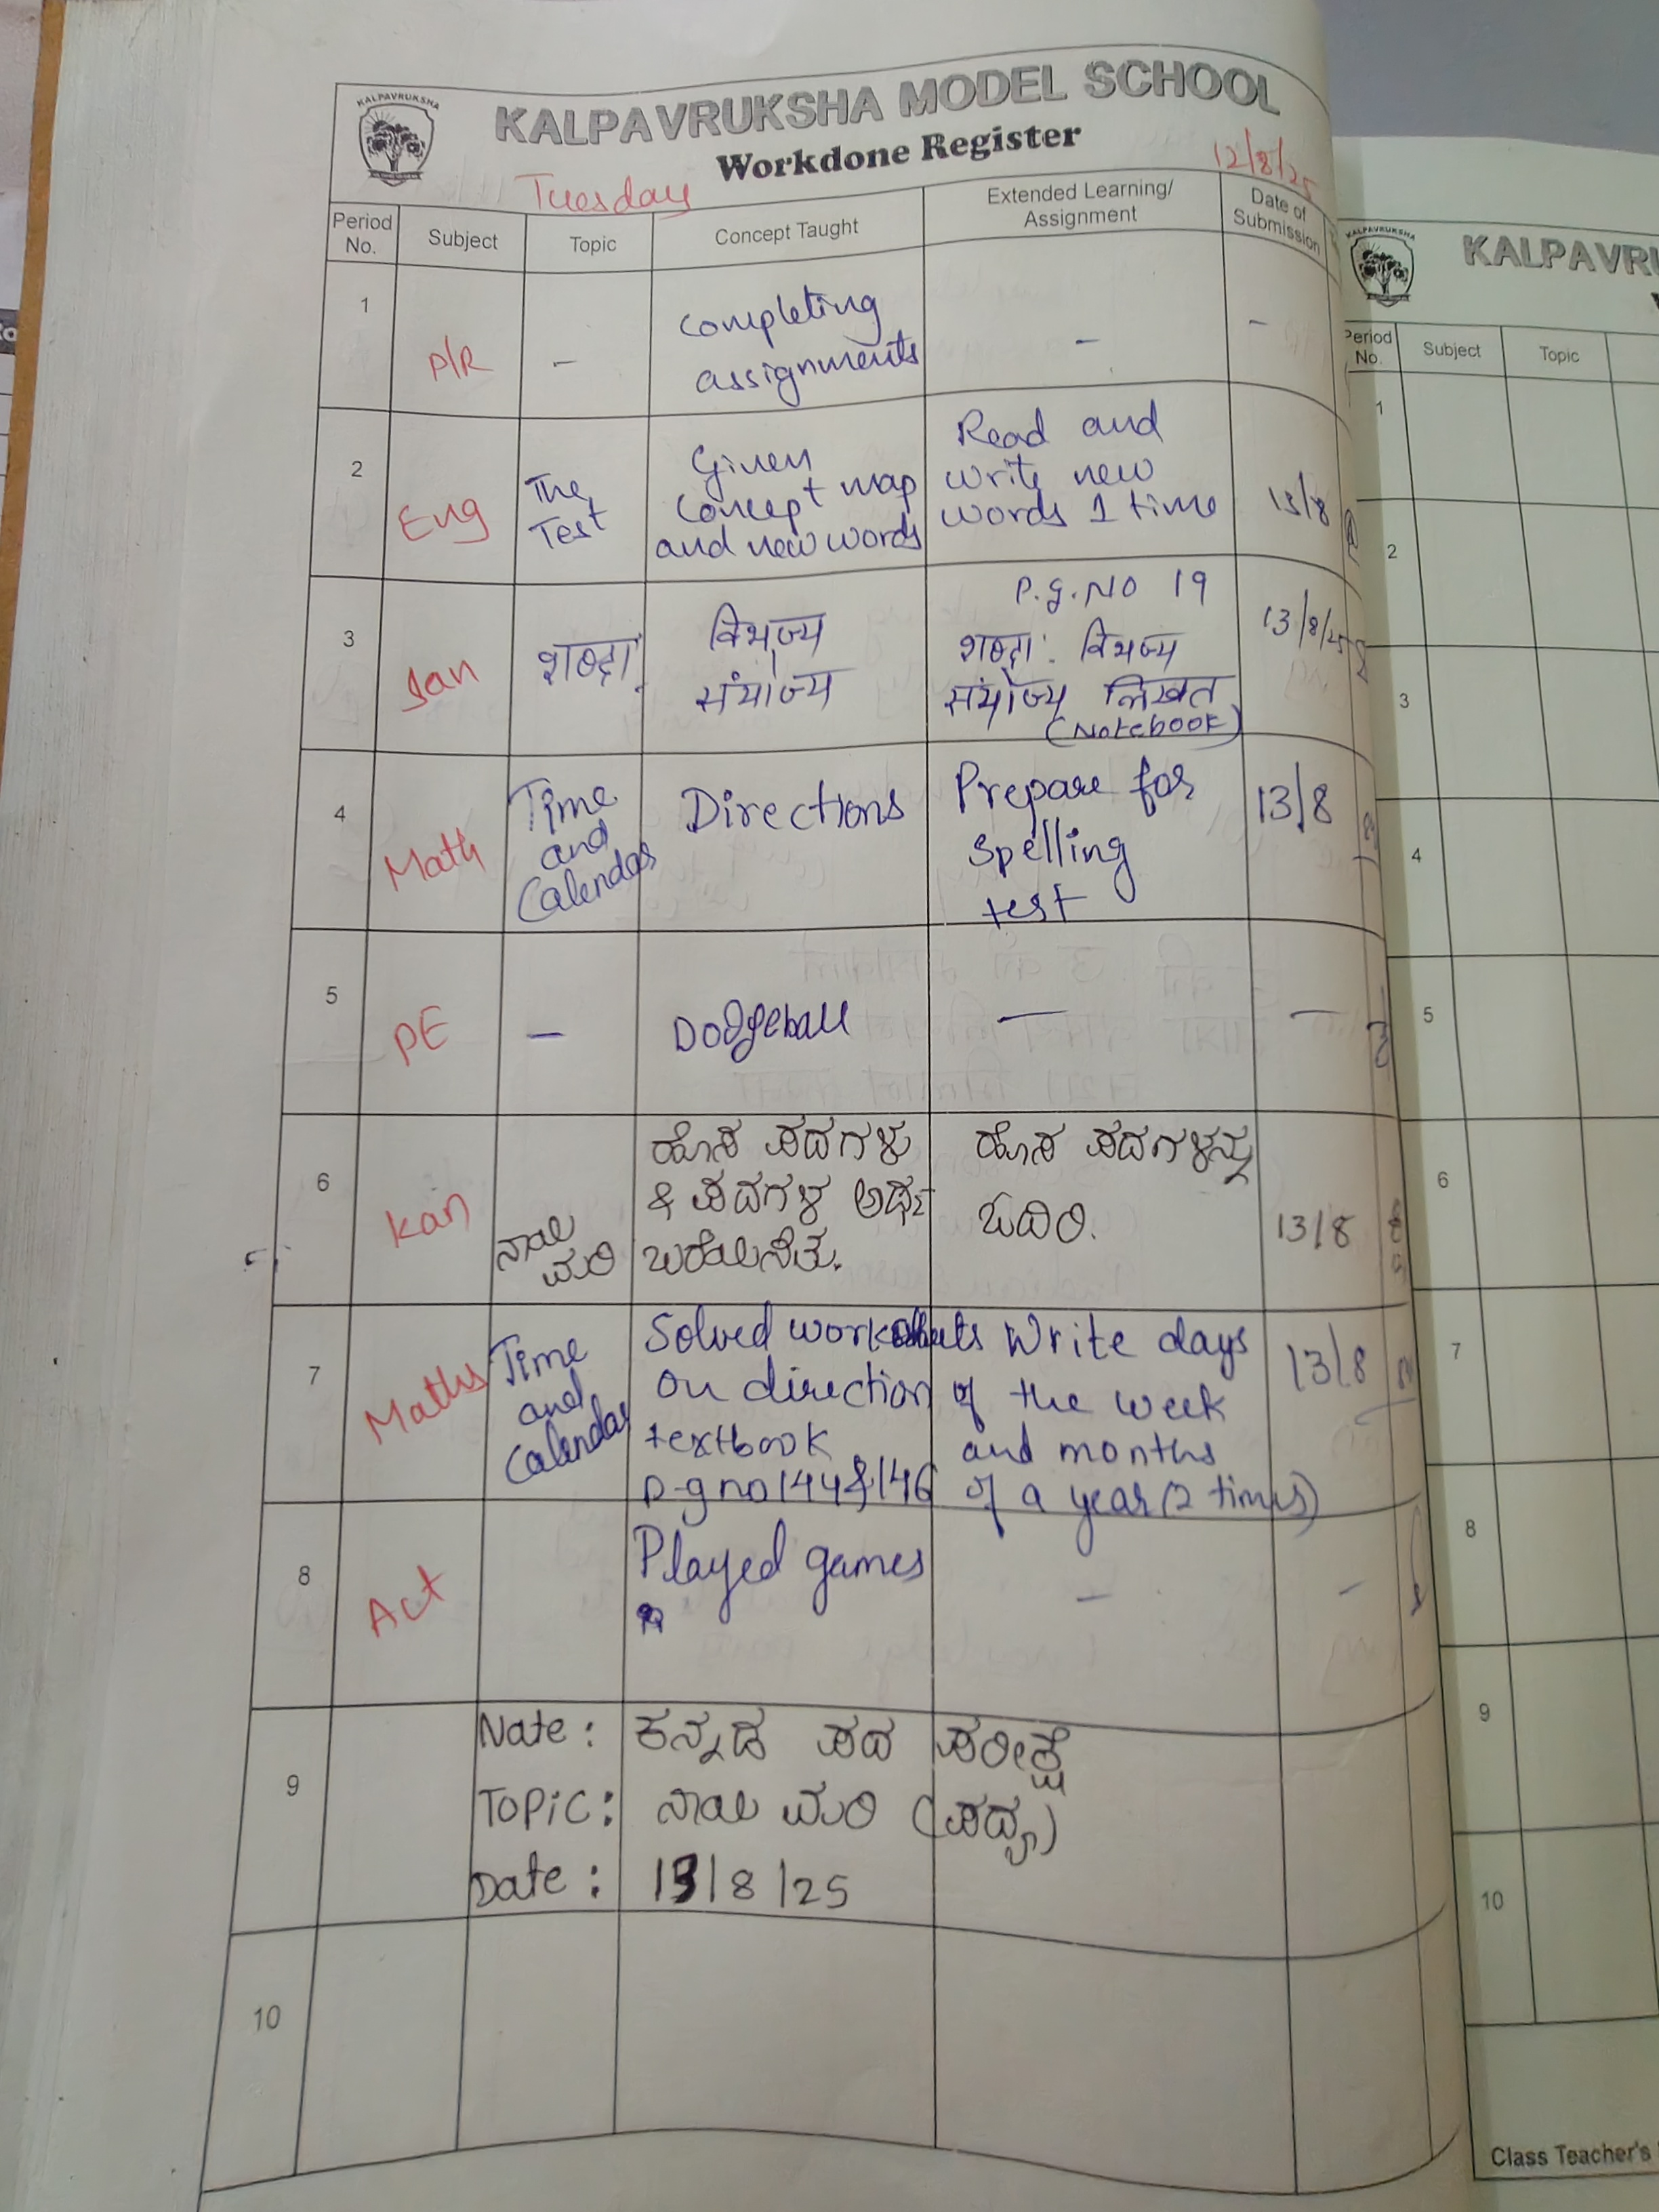 KALPAVRUKSHA
KALPAVRUKSHA MODEL SCHOOL
Workdone Register
Tuesday
12/8/25
Period No.
Subject
Topic
Concept Taught
Extended Learning/ Assignment
Date of Submission
1
P/R
-
completing
assignments
-
-
2
Eng
The
Test
Given
concept map
and new words
Read and
write new
words 1 time
13/8
3
San
शब्दाः
विभज्य
संयोज्य
P.g.NO 19
शब्दाः विभज्य
संयोज्य लिखत
(Notebook)
13/8/25
4
Math
Time
and
Calendar
Directions
Prepare for
spelling
test
13/8
5
PE
-
Dodgeball
-
-
6
Kan
ನಾಯಿ
ಮರಿ
ಹೊಸ ಪದಗಳು
& ಪದಗಳ ಅರ್ಥ
ಬರೆಯಿಸಿತು.
ಹೊಸ ಪದಗಳನ್ನು
ಓದಿರಿ.
13/8
7
Maths
Time
and
Calendar
Solved worksheets
on direction
textbook
P-g no 144 & 146
Write days
of the week
and months
of a year (2 times)
13/8
8
Act
Played games
-
-
9
Note: ಕನ್ನಡ ಪದ ಪರೀಕ್ಷೆ
Topic: ನಾಯಿ ಮರಿ (ಪದ್ಯ)
Date: 13/8/25
10
KALPAVRUKSHA
KALPAVRU
Period No.
Subject
Topic
1
2
3
4
5
6
7
8
9
10
Class Teacher's